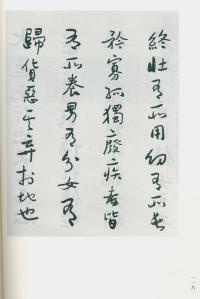 終壯有所用幼有所長
矜寡孤獨廢疾者皆
有所養男有分女有
歸貨惡其棄於地也
一八